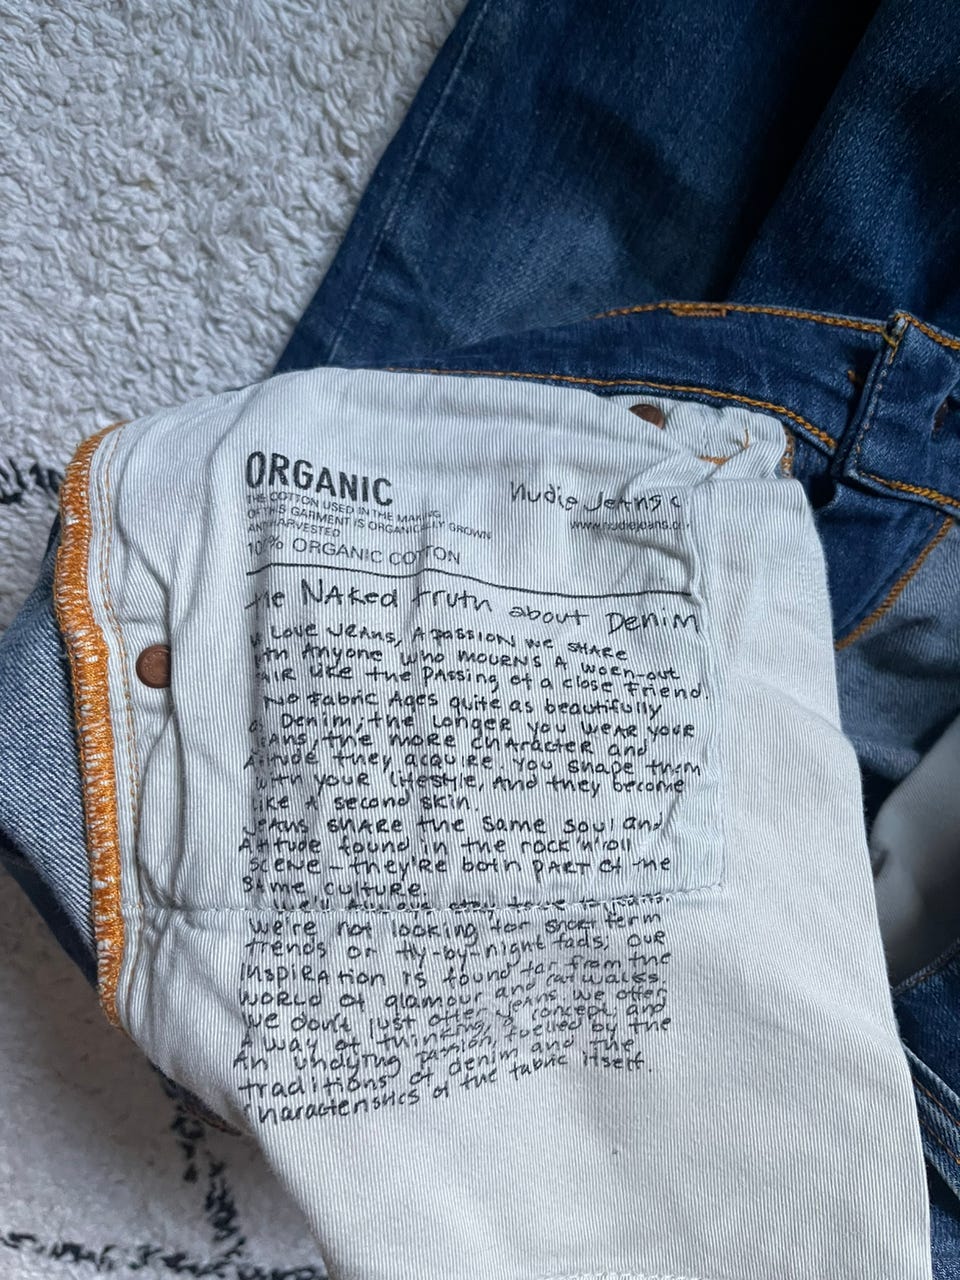 ORGANIC
THE COTTON USED IN THE MAKING
OF THIS GARMENT IS ORGANICALLY GROWN
AND HARVESTED
100% ORGANIC COTTON
Nudie Jeans c
www.nudiejeans.co
the NAKed truth about Denim
LOVE JEANS, A PASSION WE SHARE
with Anyone who MOURNS A worn-out
PAIR like the PASSING of a close friend.
NO Fabric Ages quite as beautifully
as Denim; the Longer you WEAR YOUR
JEANS, the MORE CHARACTER and
Attitude they acquire. You shape them
with your lifestyle, And they become
like A second skin.
Jeans SHARE the same soul and
Attitude found in the rock'n'roll
scene - they're both PART of the
SAME culture.
We'll Always stay true to jeans.
We're not looking for short term
trends or fly-by-night fads; our
INSPIRATION is found far from the
WORLD of glamour and catwalks.
We don't just offer Jeans. We offer
A way of thinking, A concept and
An undying passion, fuelled by the
traditions of denim and the
characteristics of the fabric itself.